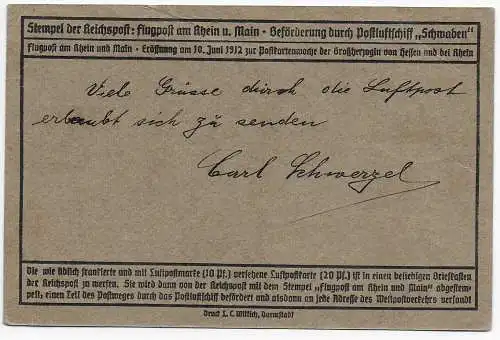 Stempel der Reichspost: Flugpost am Rhein u. Main • Beförderung durch Postluftschiff „Schwaben“
Flugpost am Rhein und Main • Eröffnung am 10. Juni 1912 zur Postkartenwoche der Großherzogin von Hessen und bei Rhein
Viele Grüsse durch die Luftpost
erlaubt sich zu senden
Carl Schwerzel
Die wie üblich frankierte und mit Luftpostmarke (10 Pf.) versehene Luftpostkarte (20 Pf.) ist in einen beliebigen Briefkasten
der Reichspost zu werfen. Sie wird dann von der Reichspost mit dem Stempel „Flugpost am Rhein und Main“ abgestem-
pelt, einen Teil des Postweges durch das Postluftschiff befördert und alsdann an jede Adresse des Weltpostverkehrs versandt
Druck L. C. Wittich, Darmstadt